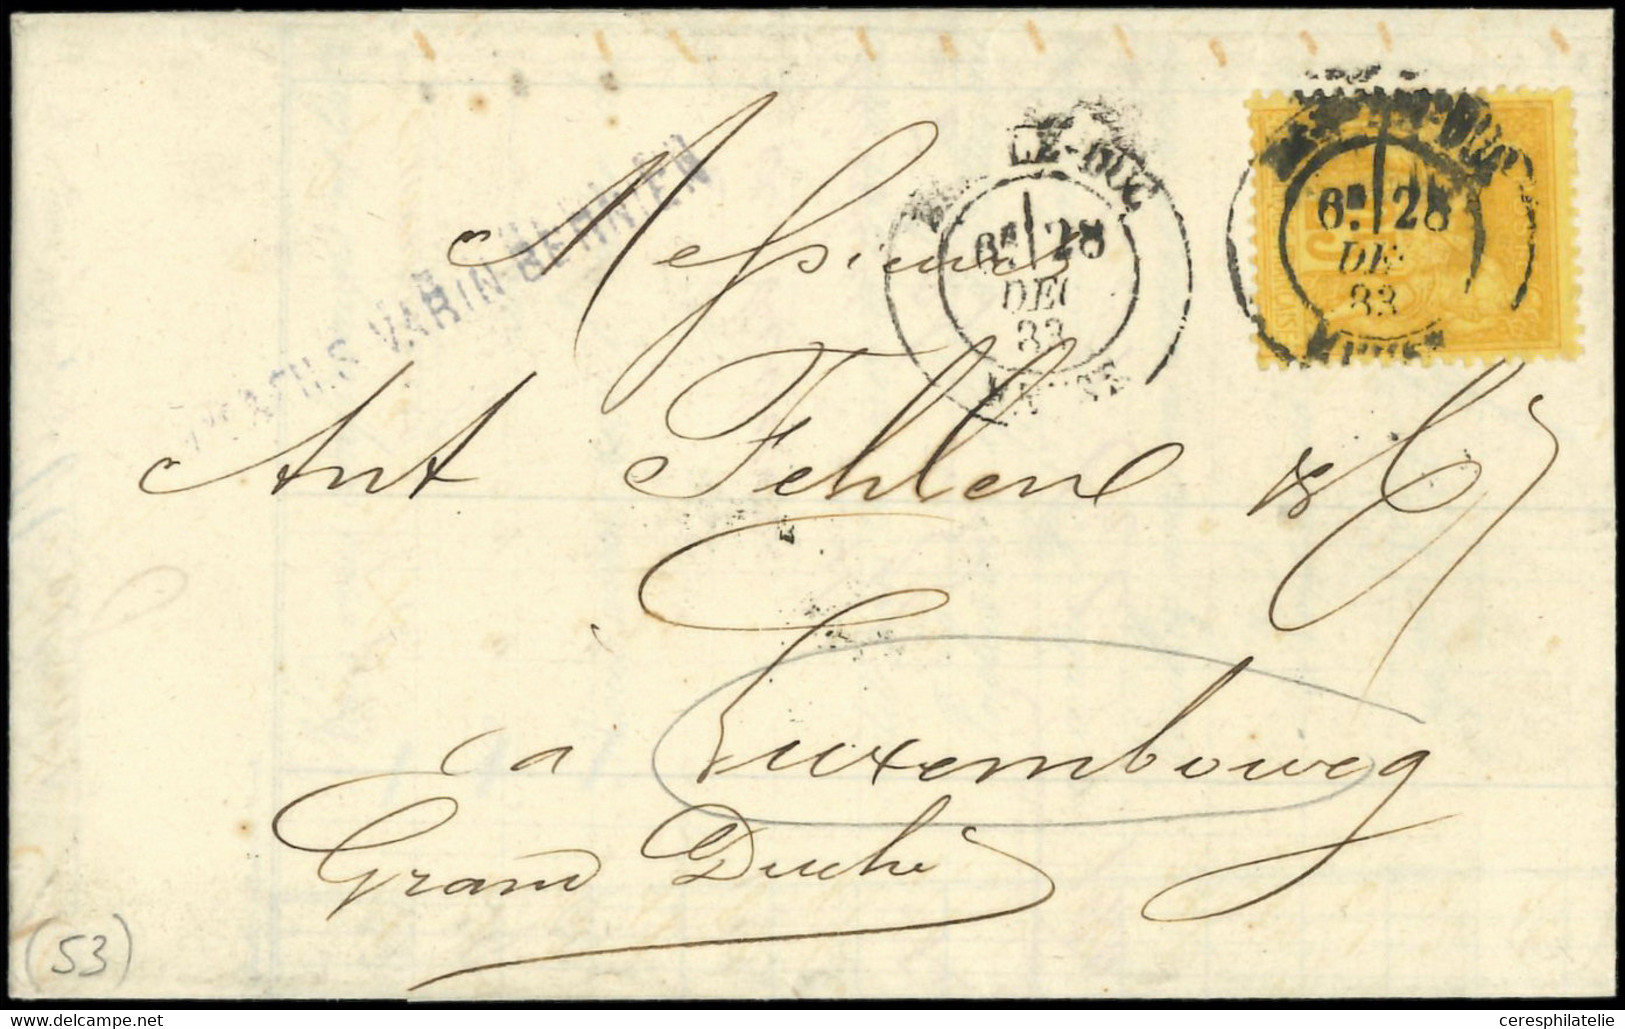 LE-DUC
6E 28
DEC
83
6E 28
DE
83
FILS VARIN-BERNIER
Messieurs
Ant Fehlen & Cie
a Luxembourg
Grand Duché
(53)
www.delcampe.net
ceresphilatelie